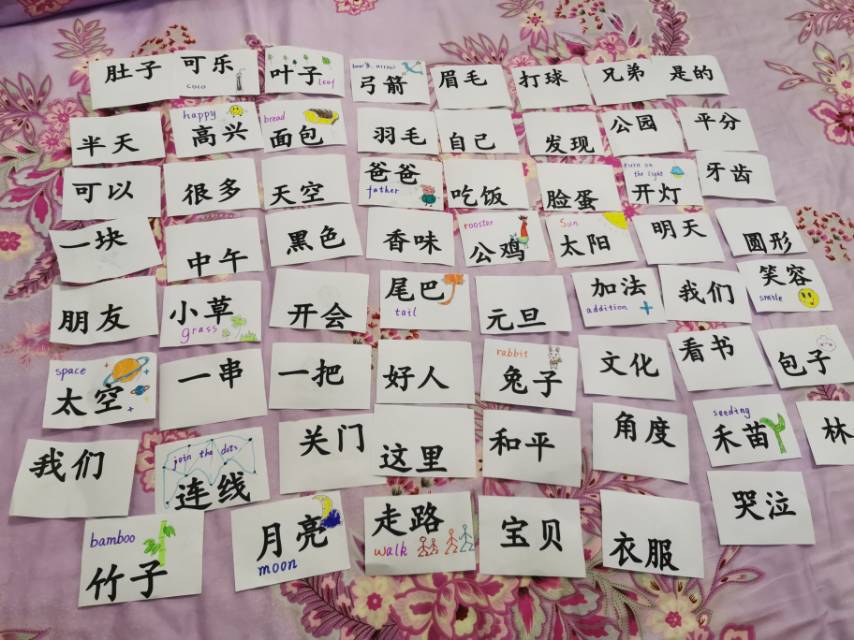 肚子 可乐 叶子 弓箭 眉毛 打球 兄弟 是的
coco leaf bow & arrow
半天 高兴 面包 羽毛 自己 发现 公园 平分
happy bread
可以 很多 天空 爸爸 吃饭 脸蛋 开灯 牙齿
father turn on the light
一块 中午 黑色 香味 公鸡 太阳 明天 圆形
rooster Sun
朋友 小草 开会 尾巴 元旦 加法 我们 笑容
grass tail addition smile
太空 一串 一把 好人 兔子 文化 看书 包子
space rabbit
我们 连线 关门 这里 和平 角度 禾苗 林
join the dots seeding
竹子 月亮 走路 宝贝 衣服 哭泣
bamboo moon walk